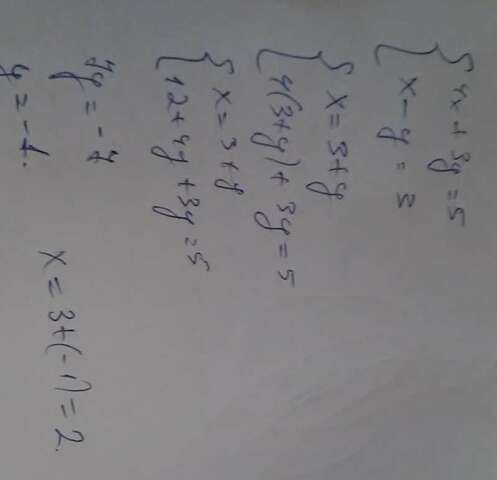 { 4x + 3y = 5
x - y = 3
{ x = 3 + y
4(3+y) + 3y = 5
{ x = 3 + y
12 + 4y + 3y = 5
7y = -7
y = -1.
x = 3 + (-1) = 2.